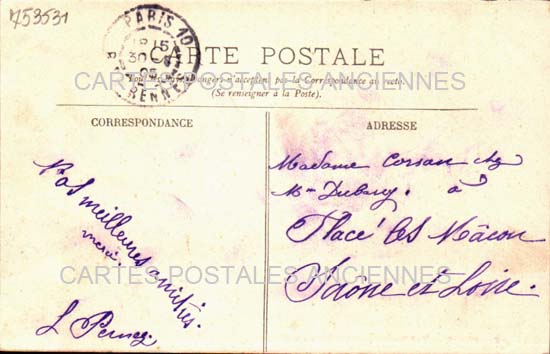 753531
PARIS 10
R. DE RENNES
CARTE POSTALE
Tous les Pays étrangers n'acceptent pas la Correspondance au recto.
(Se renseigner à la Poste).
CARTES POSTALES ANCIENNES
CORRESPONDANCE
Vos meilleures amitiés.
merci.
L
ADRESSE
Madame Corsan chez
Mme Dubarry. à
Placé les Mâcon
Saône et Loire.
CARTES POSTALES ANCIENNES